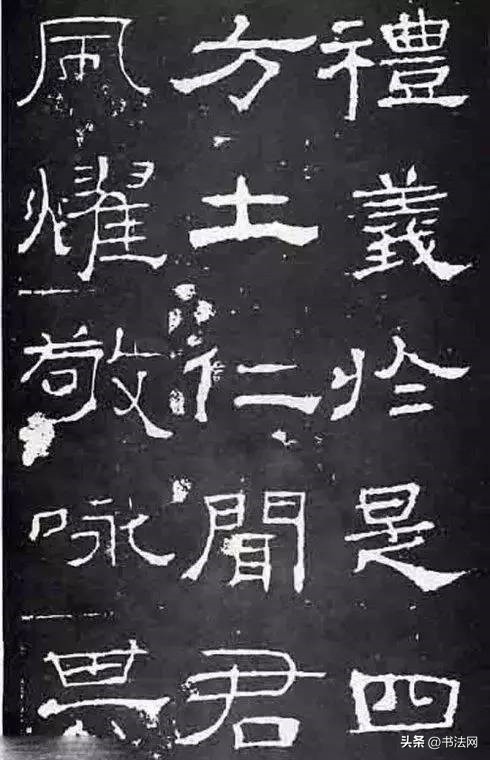 禮義於是四
方土仁聞君
風燿敬咏其
头条 @书法网